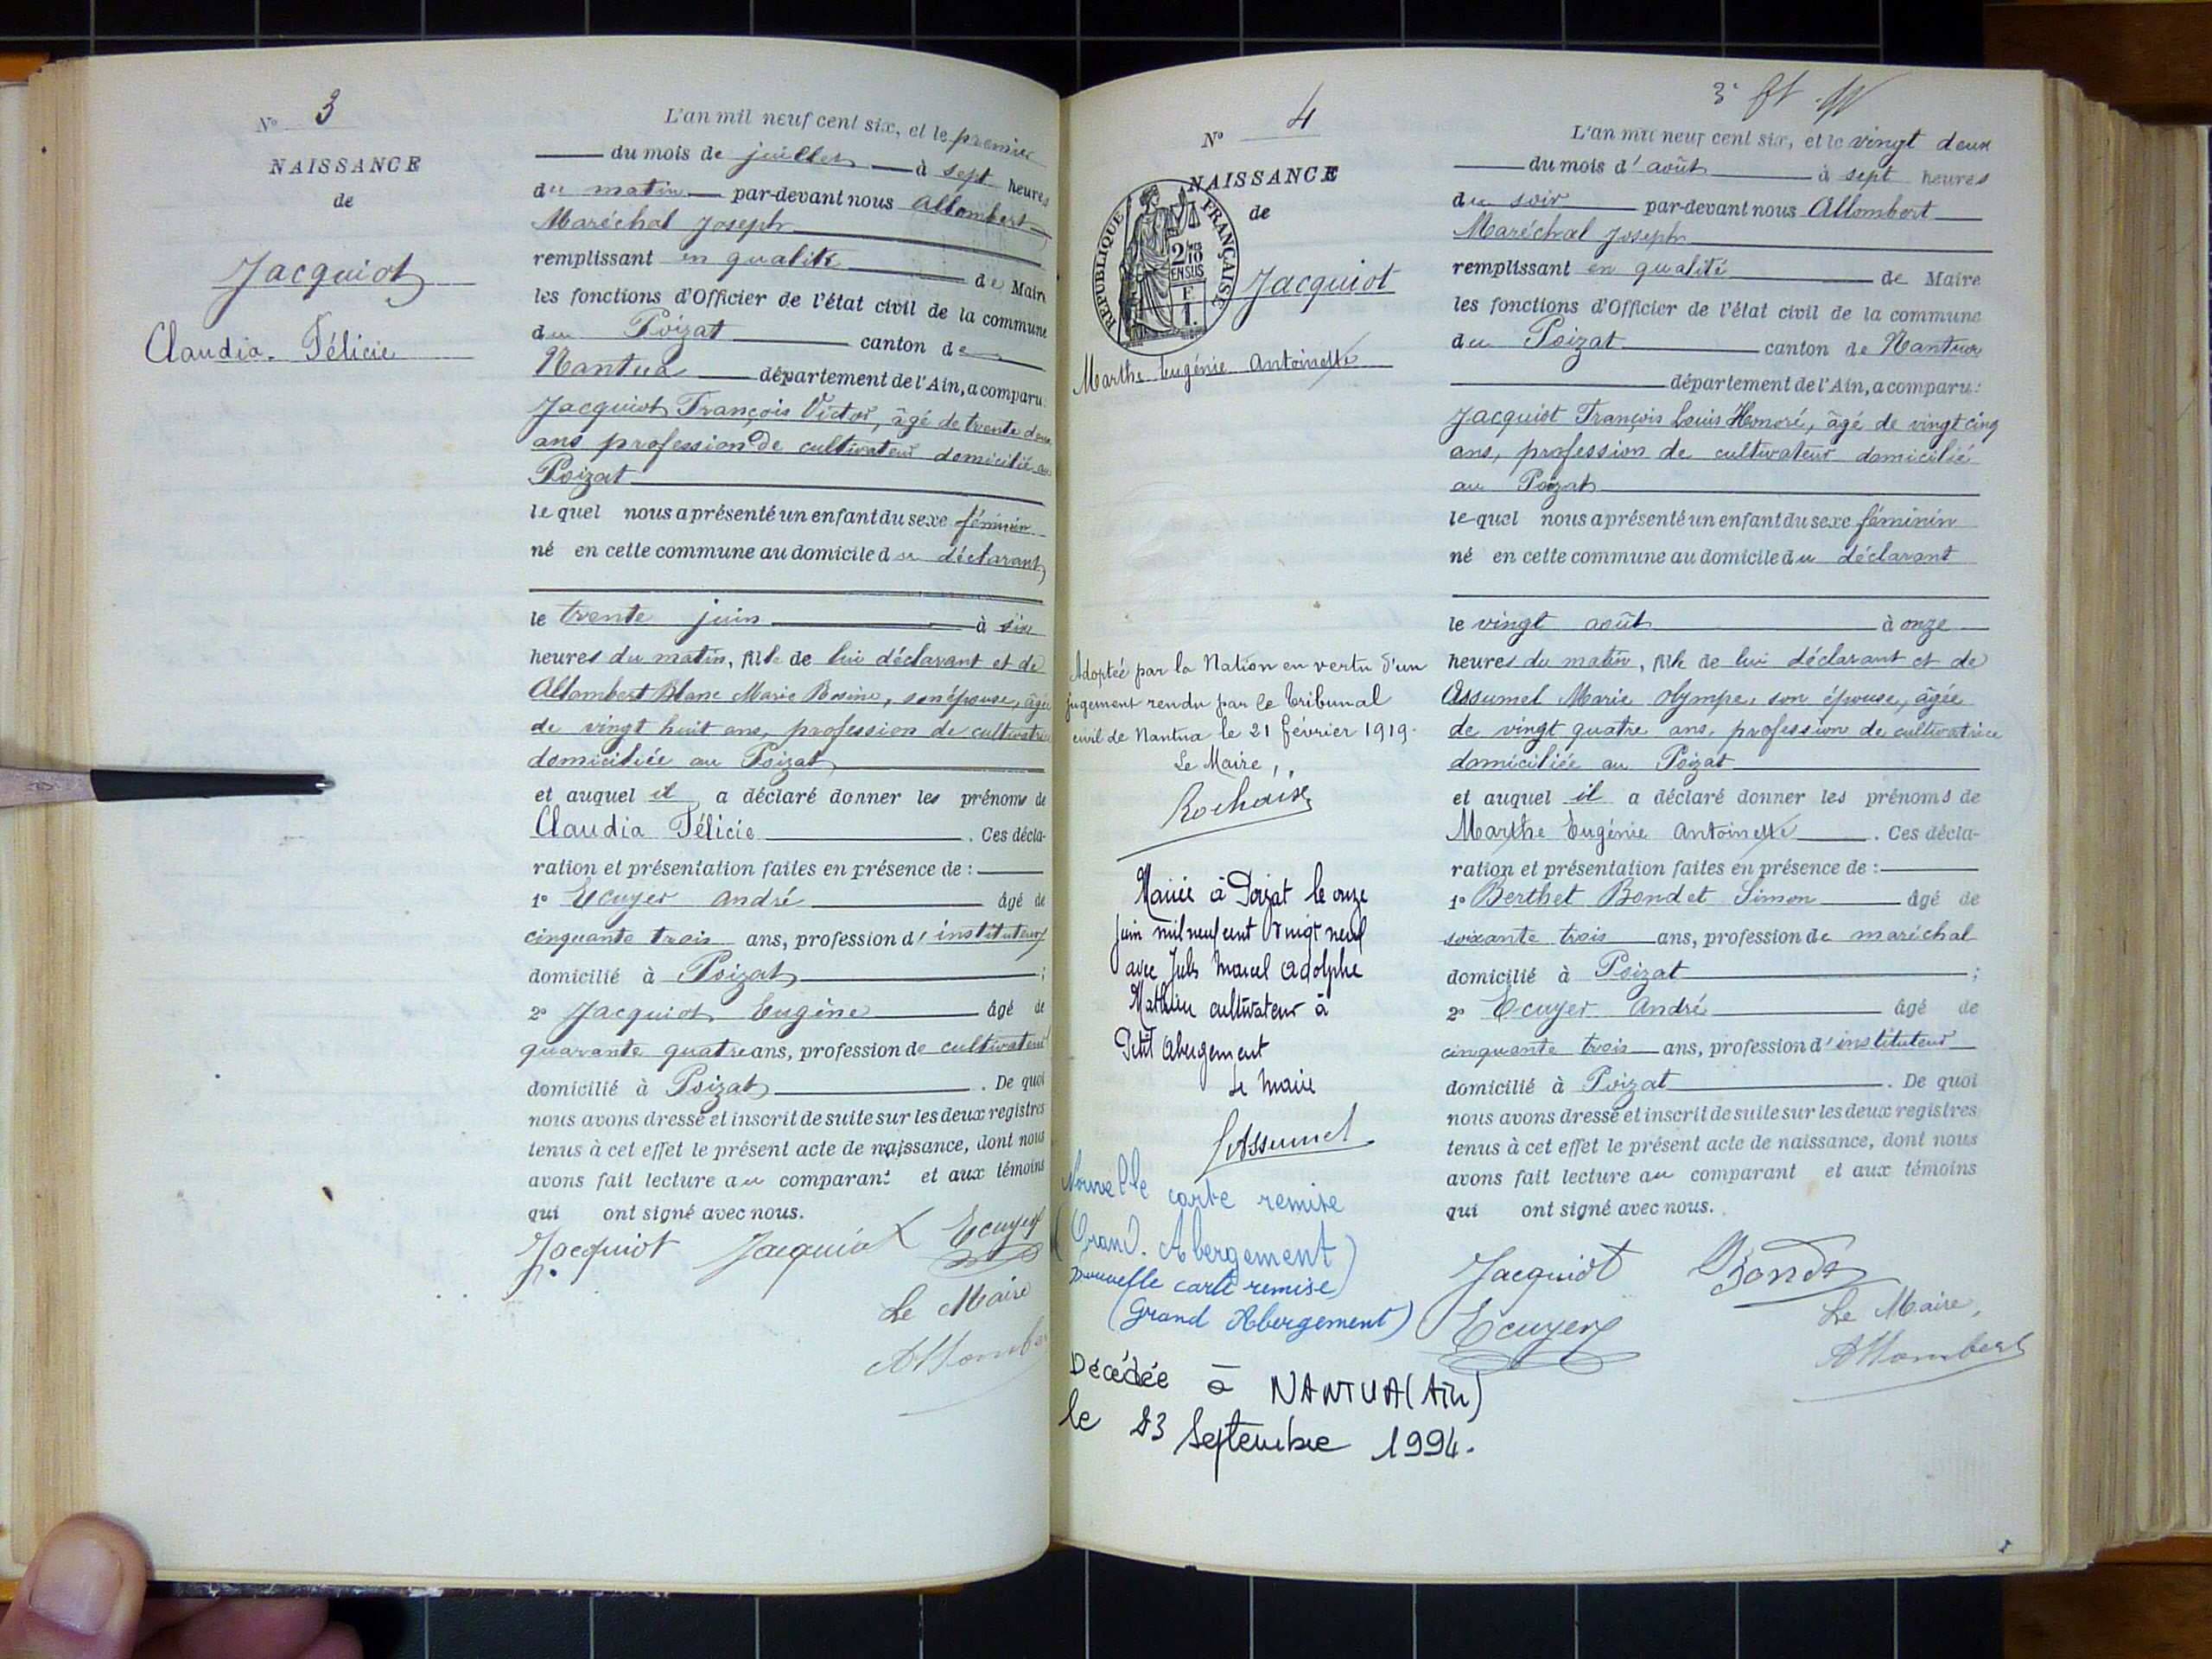 N° 3
NAISSANCE
de
Jacquiot
Claudia Félicie
L'an mil neuf cent six, et le premier
du mois de juillet à sept heures
du matin par-devant nous Allombert
Maréchal Joseph
remplissant en qualité de Maire
les fonctions d'Officier de l'état civil de la commune
du Poizat canton de
Nantua département de l'Ain, a comparu:
Jacquiot François Victor, âgé de trente deux
ans profession de cultivateur domicilié au
Poizat
lequel nous a présenté un enfant du sexe féminin
né en cette commune au domicile du déclarant
le trente juin à six
heures du matin, fille de lui déclarant et de
Allombert Blanc Marie Rosine, son épouse, âgée
de vingt huit ans, profession de cultivatrice
domiciliée au Poizat
et auquel il a déclaré donner les prénoms de
Claudia Félicie. Ces décla-
ration et présentation faites en présence de :
1° Ecuyer André âgé de
cinquante trois ans, profession d'instituteur
domicilié à Poizat ;
2° Jacquiot Eugène âgé de
quarante quatre ans, profession de cultivateur
domicilié à Poizat. De quoi
nous avons dressé et inscrit de suite sur les deux registres
tenus à cet effet le présent acte de naissance, dont nous
avons fait lecture au comparant et aux témoins
qui ont signé avec nous.
Jacquiot Jacquiot Ecuyer
Le Maire
Allombe
N° 4
NAISSANCE
de
REPUBLIQUE FRANÇAISE
2/10
EN SUS
F
1.
Jacquiot
Marthe Eugénie Antoinette
Adoptée par la Nation en vertu d'un
jugement rendu par le Tribunal
civil de Nantua le 21 février 1919.
Le Maire,
Rochaix
Mariée à Poizat le onze
juin mil neuf cent vingt neuf
avec Jules Marcel Adolphe
Mathieu cultivateur à
Petit Abergement
Le Maire
Assumel
Nouvelle carte remise
(Grand. Abergement)
nouvelle carte remise
(Grand Abergement)
Décédée à NANTUA (Ain)
le 23 Septembre 1994.
3°
L'an mil neuf cent six, et le vingt deux
du mois d'août à sept heures
du soir par-devant nous Allombert
Maréchal Joseph
remplissant en qualité de Maire
les fonctions d'Officier de l'état civil de la commune
du Poizat canton de Nantua
département de l'Ain, a comparu:
Jacquiot François Louis Honoré, âgé de vingt cinq
ans, profession de cultivateur domicilié
au Poizat
lequel nous a présenté un enfant du sexe féminin
né en cette commune au domicile du déclarant
le vingt août à onze
heures du matin, fille de lui déclarant et de
Assumel Marie Olympe, son épouse, âgée
de vingt quatre ans, profession de cultivatrice
domiciliée au Poizat
et auquel il a déclaré donner les prénoms de
Marthe Eugénie Antoinette. Ces décla-
ration et présentation faites en présence de :
1° Berthet Bondet Simon âgé de
soixante trois ans, profession de maréchal
domicilié à Poizat ;
2° Ecuyer André âgé de
cinquante trois ans, profession d'instituteur
domicilié à Poizat. De quoi
nous avons dressé et inscrit de suite sur les deux registres
tenus à cet effet le présent acte de naissance, dont nous
avons fait lecture au comparant et aux témoins
qui ont signé avec nous.
Jacquiot Bondet
Ecuyer Le Maire,
Allombert